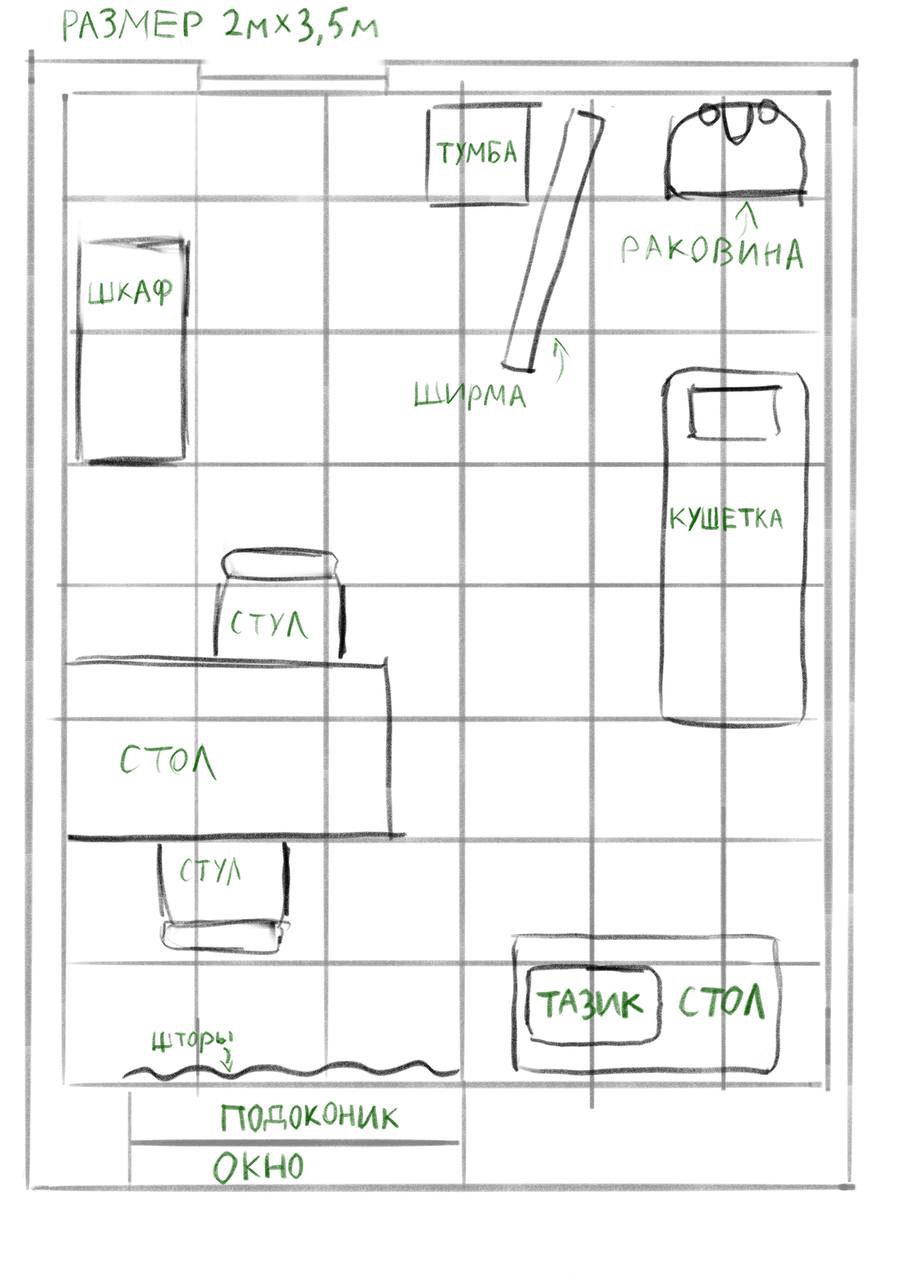 РАЗМЕР 2м×3,5м
ТУМБА
РАКОВИНА
ШКАФ
ШИРМА
КУШЕТКА
СТУЛ
СТОЛ
СТУЛ
ТАЗИК СТОЛ
шторы
ПОДОКОНИК
ОКНО